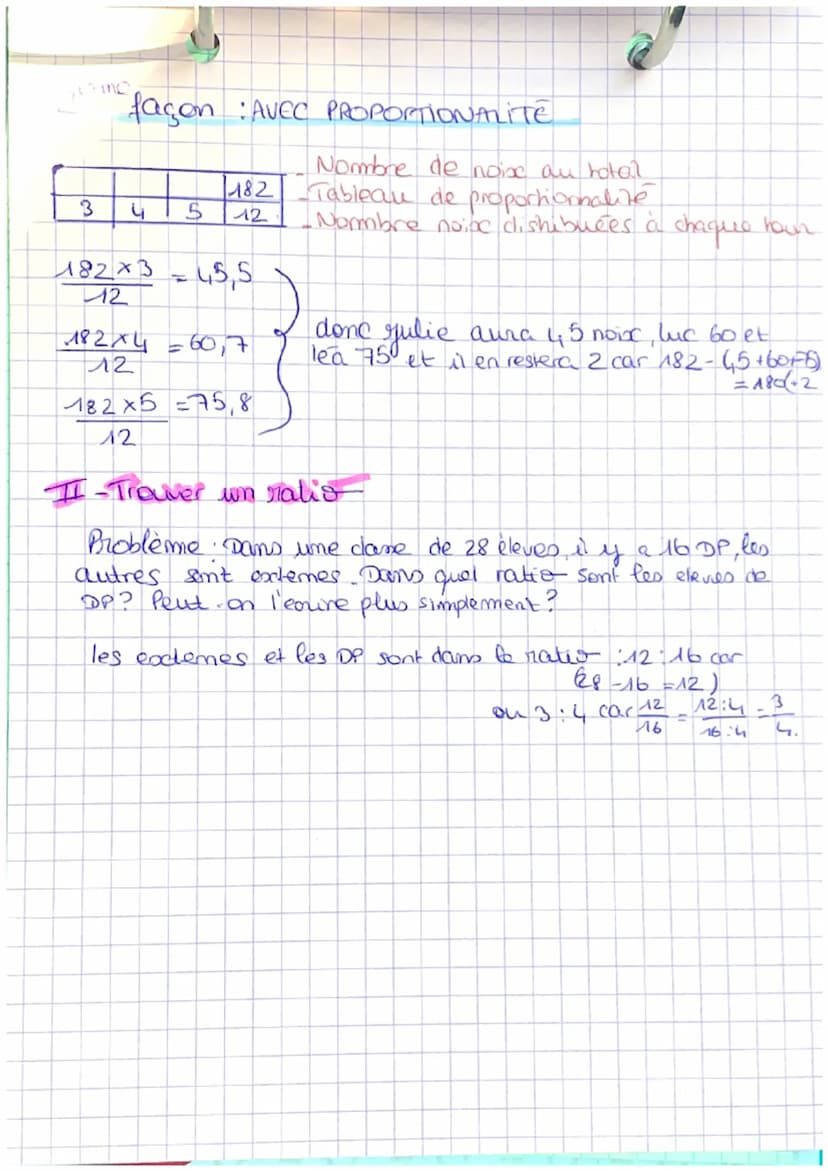 façon : AVEC PROPORTIONALITÉ
182
3 4 5 12
- Nombre de noix au total
- Tableau de proportionnalité
- Nombre noix distribuées à chaque tour
182 x 3 / 12 = 45,5
182 x 4 / 12 = 60,7
182 x 5 / 12 = 75,8
donc julie aura 45 noix, luc 60 et
léa 75 et il en restera 2 car 182 - (45+60+75)
II - Trouver un ratio
Problème : Dans une classe de 28 élèves, il y a 16 DP, les
autres sont externes. Dans quel ratio sont les eleves de
DP ? Peut-on l'ecrire plus simplement ?
les externes et les DP sont dans le ratio : 12 : 16 car
(28 - 16 = 12)
ou 3 : 4 car 12/16 = 12:4/16:4 = 3/4.